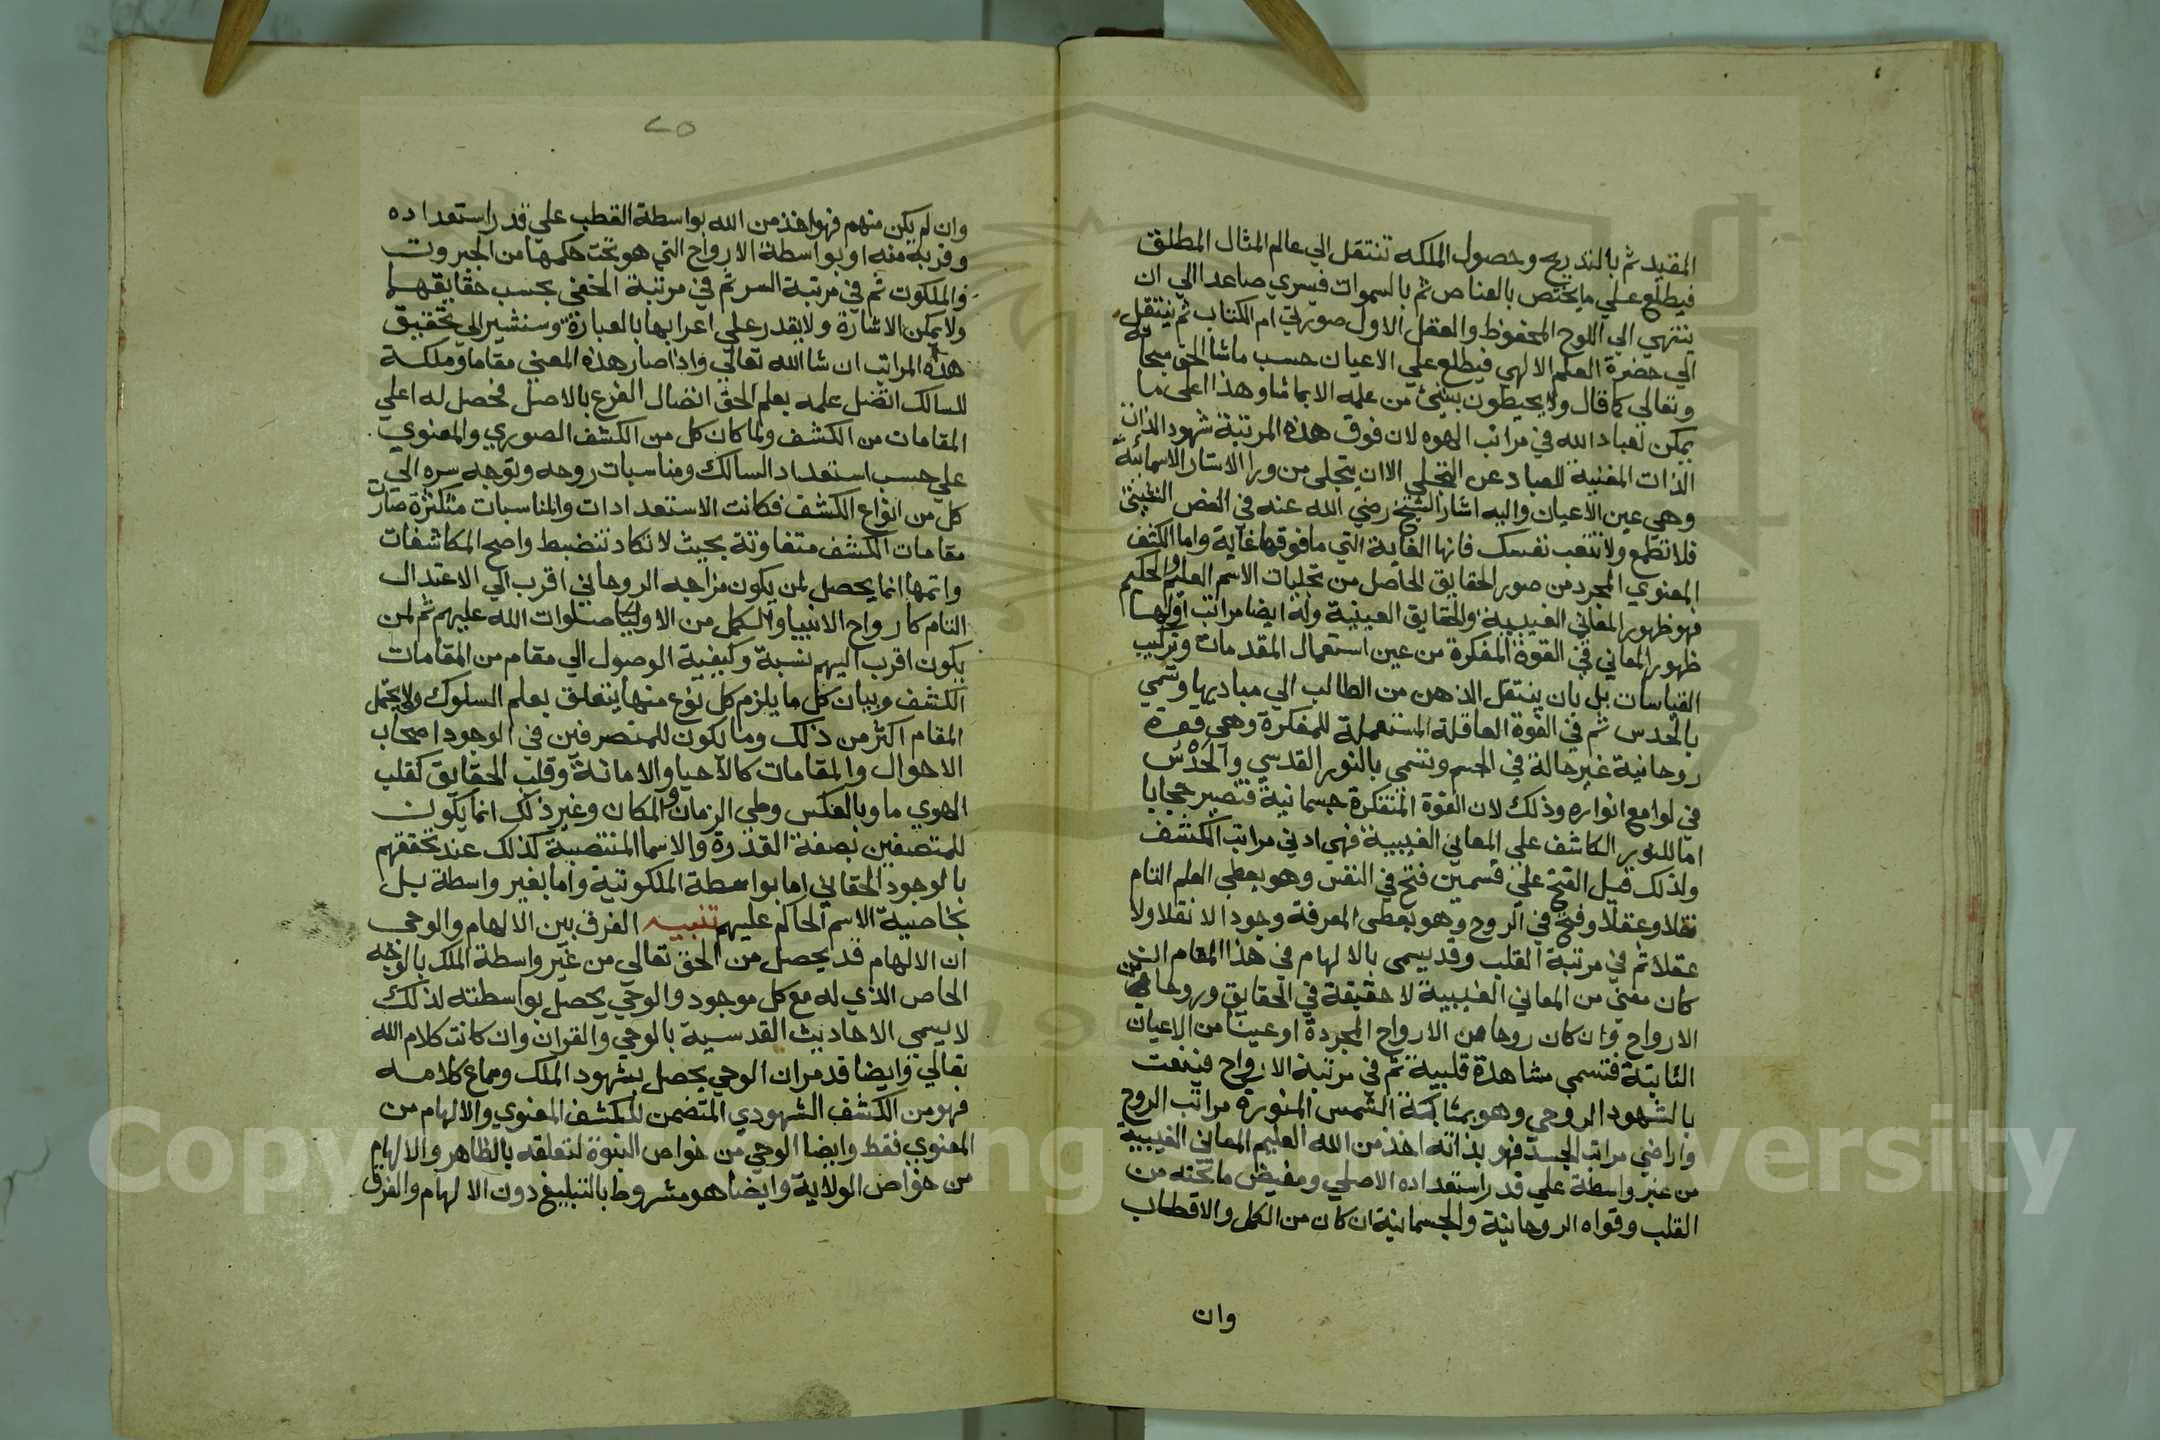 المقيد ثم بالتدريج وحصول الملكه تنتقل الي عالم المثال المطلق
فيطلع علي ما يختص بالعناصر ثم بالسموات فيسري صاعدا الي ان
ينتهي الي اللوح المحفوظ والعقل الاول صورتي ام الكتاب ثم ينتقل
الي حضرة العلم الالهي فيطلع علي الاعيان حسب ما شا الحق سبحانه
وتعالي كما قال ولا يحيطون بشيئ من علمه الا بما شا وهذا اعلى ما
يمكن لعباد الله في مراتب الهوه لان فوق هذه المرتبة شهود الذات
الذات المغنية للعباد عن التجلي الا ان يتجلى من ورا الاستار الاسمائية
وهي عين الاعيان واليه اشار الشيخ رضي الله عنه في الفص الشيثي
فلا تطمع ولا تتعب نفسك فانها الغاية التي ما فوقها غاية واما الكشف
المعنوي المجرد من صور الحقايق الحاصل من تجليات الاسم العليم والحكيم
فهو ظهور المعاني الغيبية والحقايق العينية وله ايضا مراتب اولها
ظهور المعاني في القوة المفكرة من عين استعمال المقدمات وتركيب
القياسات بل بان ينتقل الذهن من الطالب الي مباديها وتسمي
بالحدس ثم في القوة العاقلة المستعملة للمفكرة وهي قوة
روحانية غير حالة في الجسم وتسمى بالنور القدسي والحدس
في لوامع انواره وذلك لان القوة المتفكرة جسمانية فتصير حجابا
اما للنور الكاشف على المعاني الغيبية فهي ادني مراتب الكشف
ولذلك قيل الفتح علي قسمين فتح في النفس وهو يعطي العلم التام
نقلا وعقلا وفتح في الروح وهو يعطى المعرفة وجودا لا نقلا ولا
عقلا ثم في مرتبة القلب وقد يسمى بالالهام في هذا المقام ان
كان معنى من المعاني الغيبية لا حقيقة في الحقايق وروحا من
الارواح وان كان روحا من الارواح المجردة او عينا من الاعيان
الثابتة فتسمى مشاهدة قلبية ثم في مرتبة الارواح فينعت
بالشهود الروحي وهو بمثابة الشمس المنورة مراتب الروح
واراضي مراتب الجسد فهو بذاته اخذ من الله العليم المعاني الغيبية
من غير واسطة علي قدر استعداده الاصلي ومفيض ما تحته من
القلب وقواه الروحانية والجسمانية ان كان من الكمل والاقطاب
وان
٢٥
وان لم يكن منهم فهو اخذ من الله بواسطة القطب علي قدر استعداده
وقربه منه او بواسطة الارواح التي هو تحت حكمها من الجبروت
والملكوت ثم في مرتبة السر ثم في مرتبة الخفي بحسب حقايقهما
ولا يمكن الاشارة ولا يقدر علي اعرابها بالعبارة وسنشير الي تحقيق
هذه المراتب ان شا الله تعالي واذا صار هذه المعني مقاما وملكة
للسالك اتصل علمه بعلم الحق اتصال الفرع بالاصل فحصل له اعلي
المقامات من الكشف ولما كان كل من الكشف الصوري والمعنوي
علي حسب استعداد السالك ومناسبات روحه وتوجه سره الي
كل من انواع الكشف فكانت الاستعدادات والمناسبات متكثرة صارت
مقامات الكشف متفاوتة بحيث لا تكاد تنضبط واصح المكاشفات
واتمها انما يحصل لمن يكون مزاجه الروحاني اقرب الي الاعتدال
التام كارواح الانبيا والكمل من الاوليا صلوات الله عليهم ثم لمن
يكون اقرب اليهم نسبة وكيفية الوصول الي مقام من المقامات
الكشف وبيان كل ما يلزم كل نوع منها يتعلق بعلم السلوك ولا يحتمل
المقام اكثر من ذلك وما يكون للمتصرفين في الوجود اصحاب
الاحوال والمقامات كالاحيا والاماتة وقلب الحقايق كقلب
الهوي ما وبالعكس وطي الزمان والمكان وغير ذلك انما يكون
للمتصفين بصفة القدرة والاسما المنتصبة كذلك عند تحققهم
بالوجود الحقاني اما بواسطة الملكوتية واما بغير واسطة بل
بخاصية الاسم الحاكم عليهم تنبيه الفرق بين الالهام والوحي
ان الالهام قد يحصل من الحق تعالي من غير واسطة الملك بالوجه
الخاص الذي له مع كل موجود والوحي يحصل بواسطته لذلك
لا يسمي الاحاديث القدسية بالوحي والقران وان كانت كلام الله
تعالي وايضا قد مر ان الوحي يحصل بشهود الملك وسماع كلامه
فهو من الكشف الشهودي المتضمن للكشف المعنوي والالهام من
المعنوي فقط وايضا الوحي من خواص النبوة لتعلقه بالظاهر والالهام
من خواص الولاية وايضا هو مشروط بالتبليغ دون الالهام والفرق